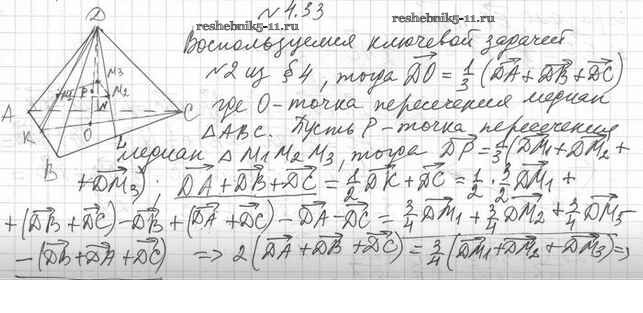 №4.33
reshebnik5-11.ru reshebnik5-11.ru
Воспользуемся ключевой задачей
№2 из §4, тогда DO = 1/3 (DA + DB + DC)
где O - точка пересечения медиан
△ABC. Пусть P - точка пересечения
медиан △M1M2M3, тогда DP = 1/3 (DM1 + DM2 +
+ DM3). DA + DB + DC = 1/2 DK + DC = 1/2 · 3/2 DM1 +
+ (DB + DC) - DB + (DA + DC) - DA - DC = 3/4 DM1 + 3/4 DM2 + 3/4 DM3 -
- (DB + DA + DC) => 2 (DA + DB + DC) = 3/4 (DM1 + DM2 + DM3) =>
D
M3
M1 P M2
N
A C
K O L
B